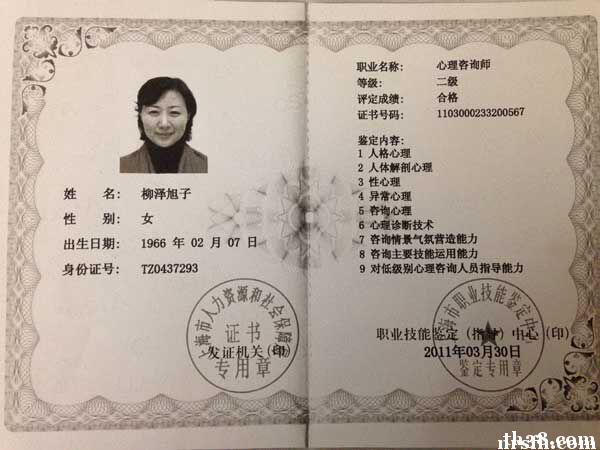 姓 名: 柳泽旭子
性 别: 女
出生日期: 1966 年 02 月 07 日
身份证号: TZ0437293
上海市人力资源和社会保障局
证书
发证机关 (印)
专用章
职业名称: 心理咨询师
等级: 二级
评定成绩: 合格
证书号码: 1103000233200567
鉴定内容:
1 人格心理
2 人体解剖心理
3 性心理
4 异常心理
5 咨询心理
6 心理诊断技术
7 咨询情景气氛营造能力
8 咨询主要技能运用能力
9 对低级别心理咨询人员指导能力
上海市职业技能鉴定中心
职业技能鉴定 (指导) 中心 (印)
2011年03月30日
鉴定专用章